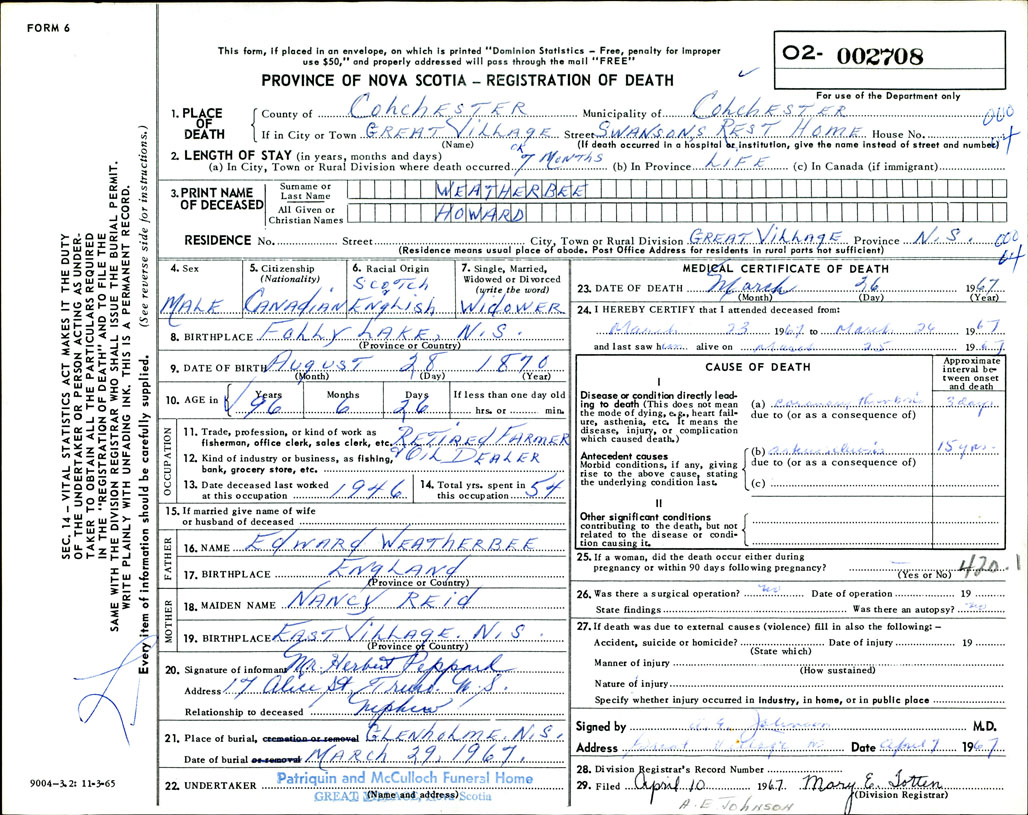 FORM 6
This form, if placed in an envelope, on which is printed "Dominion Statistics – Free, penalty for improper
use $50," and properly addressed will pass through the mail "FREE"
PROVINCE OF NOVA SCOTIA – REGISTRATION OF DEATH
02- 002708
For use of the Department only
SEC. 14 – VITAL STATISTICS ACT MAKES IT THE DUTY
OF THE UNDERTAKER OR PERSON ACTING AS UNDER-
TAKER TO OBTAIN ALL THE PARTICULARS REQUIRED
IN THE "REGISTRATION OF DEATH" AND TO FILE THE
SAME WITH THE DIVISION REGISTRAR WHO SHALL ISSUE THE BURIAL PERMIT.
WRITE PLAINLY WITH UNFADING INK. THIS IS A PERMANENT RECORD.
Every item of information should be carefully supplied. (See reverse side for instructions.)
1. PLACE OF DEATH
County of COLCHESTER Municipality of COLCHESTER 000
If in City or Town GREAT VILLAGE Street SWANSONS REST HOME House No. 04
(Name) (If death occurred in a hospital or institution, give the name instead of street and number)
2. LENGTH OF STAY (in years, months and days)
(a) In City, Town or Rural Division where death occurred 7 MONTHS (b) In Province LIFE (c) In Canada (if immigrant)
3. PRINT NAME OF DECEASED
Surname or Last Name WEATHERBEE
All Given or Christian Names HOWARD
RESIDENCE No. Street City, Town or Rural Division GREAT VILLAGE Province N.S. 000
(Residence means usual place of abode. Post Office Address for residents in rural parts not sufficient) 04
4. Sex
MALE
5. Citizenship (Nationality)
CANADIAN
6. Racial Origin
SCOTCH
ENGLISH
7. Single, Married, Widowed or Divorced (write the word)
WIDOWER
8. BIRTHPLACE FOLLY LAKE, N.S.
(Province or Country)
9. DATE OF BIRTH AUGUST 28 1870
(Month) (Day) (Year)
10. AGE in Years Months Days If less than one day old
96 6 26 hrs. or min.
OCCUPATION
11. Trade, profession, or kind of work as
fisherman, office clerk, sales clerk, etc. RETIRED FARMER
12. Kind of industry or business, as fishing,
bank, grocery store, etc. OIL DEALER
13. Date deceased last worked
at this occupation 1946
14. Total yrs. spent in
this occupation 54
15. If married give name of wife
or husband of deceased
FATHER
16. NAME EDWARD WEATHERBEE
17. BIRTHPLACE ENGLAND
(Province or Country)
MOTHER
18. MAIDEN NAME NANCY REID
19. BIRTHPLACE EAST VILLAGE. N.S.
(Province or Country)
20. Signature of informant Mr. Herbert Peppard
Address 17 Alice St, Truro. N.S.
Relationship to deceased Nephew
21. Place of burial, cremation or removal GLENHOLME, N.S.
Date of burial or removal MARCH 29, 1967.
22. UNDERTAKER Patriquin and McCulloch Funeral Home
GREAT VILLAGE, Nova Scotia
(Name and address)
9004–3.2: 11-3-65
MEDICAL CERTIFICATE OF DEATH
23. DATE OF DEATH March 26 1967
(Month) (Day) (Year)
24. I HEREBY CERTIFY that I attended deceased from:
March 23 1967 to March 26 1967
and last saw him alive on March 25 1967
CAUSE OF DEATH
Approximate interval between onset and death
I
Disease or condition directly leading to death (This does not mean the mode of dying, e.g., heart failure, asthenia, etc. It means the disease, injury, or complication which caused death.)
(a) 3 days
due to (or as a consequence of)
Antecedent causes
Morbid conditions, if any, giving rise to the above cause, stating the underlying condition last.
(b) 15 yrs.
due to (or as a consequence of)
(c)
II
Other significant conditions
contributing to the death, but not related to the disease or condition causing it.
25. If a woman, did the death occur either during
pregnancy or within 90 days following pregnancy?
(Yes or No) 420.1
26. Was there a surgical operation? no Date of operation 19
State findings Was there an autopsy? no
27. If death was due to external causes (violence) fill in also the following:–
Accident, suicide or homicide? Date of injury 19
(State which)
Manner of injury
(How sustained)
Nature of injury
Specify whether injury occurred in industry, in home, or in public place
Signed by Johnson M.D.
Address Great Village Date April 7 1967
28. Division Registrar's Record Number
29. Filed April 10 1967. Mary E. Totten
(Division Registrar)
A. E. JOHNSON